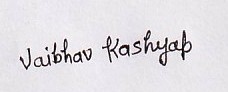 Vaibhav Kashyap